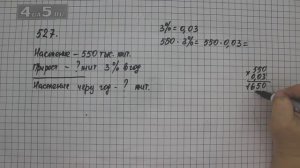 527.
Население – 550 тыс. чит.
Прирост – ? чит 3% в год
Население через год – ? чит.
3% = 0,03
550 · 3% = 550 · 0,03 =
× 550
0,03
1650